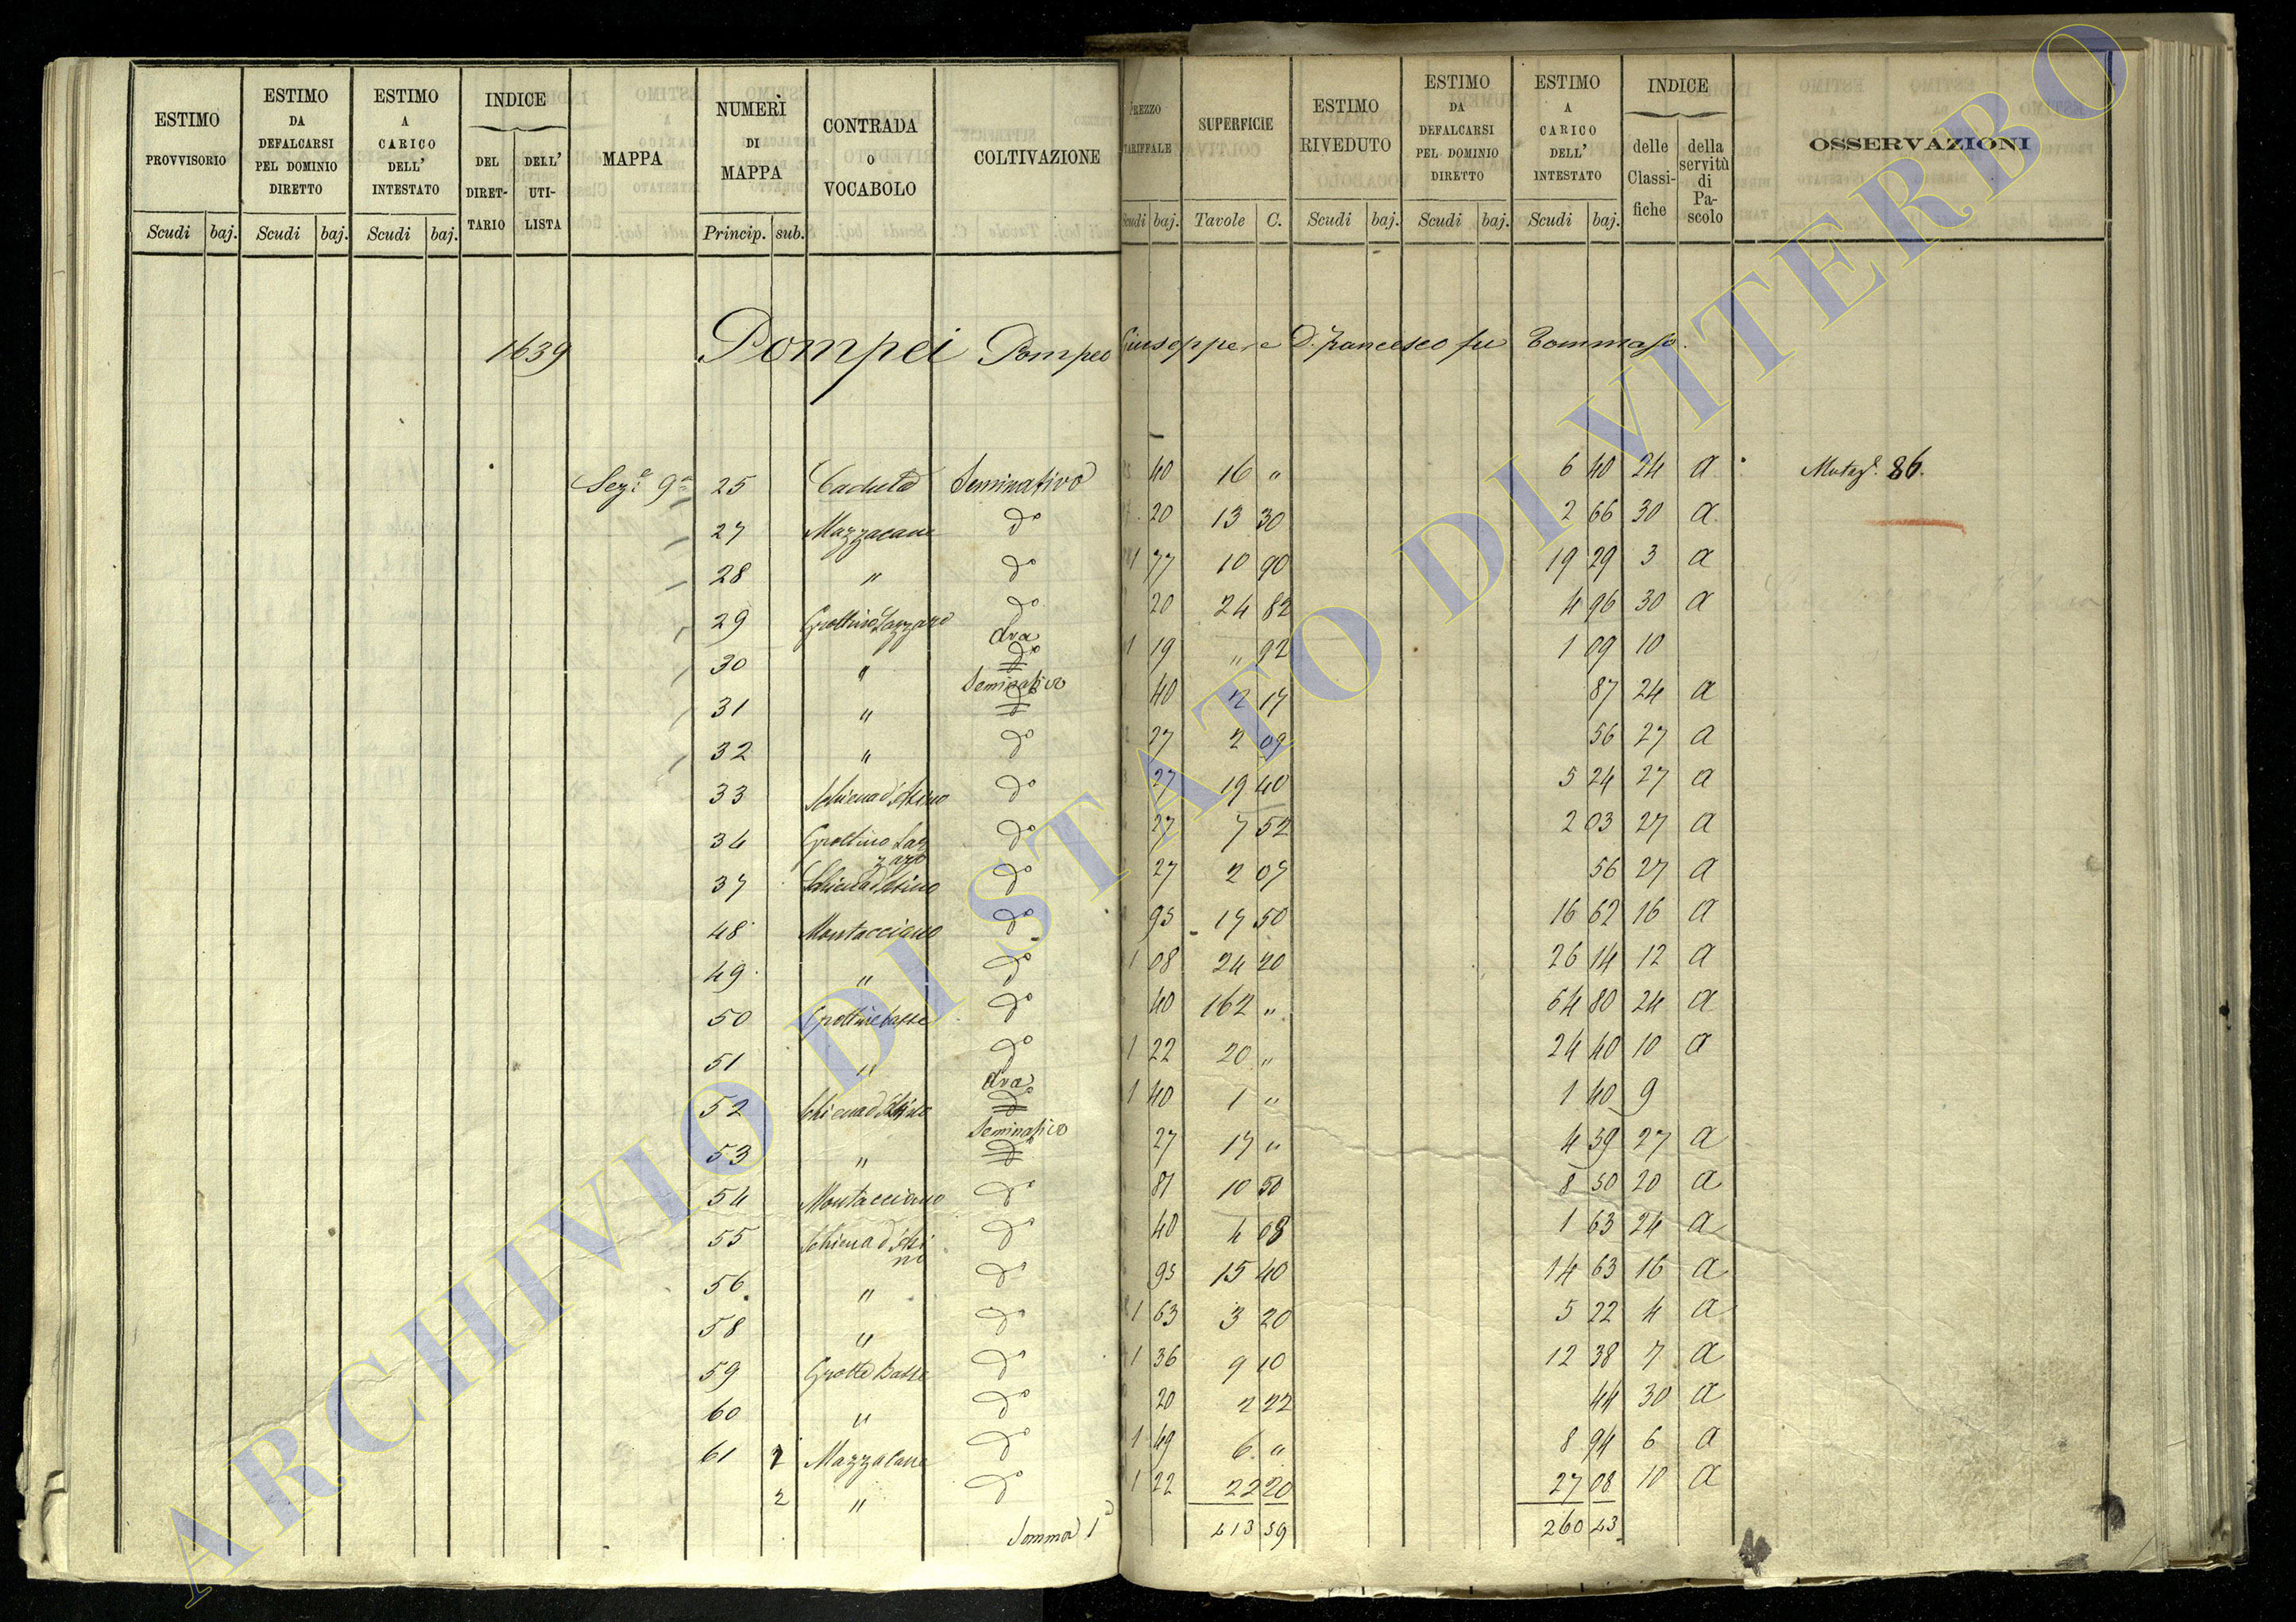 ESTIMO PROVVISORIO | ESTIMO DA DEFALCARSI PEL DOMINIO DIRETTO | ESTIMO A CARICO DELL' INTESTATO | INDICE | MAPPA | NUMERI DI MAPPA | CONTRADA O VOCABOLO | COLTIVAZIONE | PREZZO TARIFFALE | SUPERFICIE | ESTIMO RIVEDUTO | ESTIMO DA DEFALCARSI PEL DOMINIO DIRETTO | ESTIMO A CARICO DELL' INTESTATO | INDICE | OSSERVAZIONI
DEL DIRETTARIO | DELL' UTILISTA | delle Classifiche | della servitù di Pascolo
Scudi | baj. | Scudi | baj. | Scudi | baj. | Princip. | sub. | Scudi | baj. | Tavole | C. | Scudi | baj. | Scudi | baj. | Scudi | baj.
1639 Pompei Pompeo Giuseppe e D. Francesco fu Tommaso.
Sez.e 9a 25 Caduta Seminativo 40 16 " 6 40 24 a Mutaz.e 86.
27 Mazzacane do 20 13 30 2 66 30 a
28 " do 1 77 10 90 19 29 3 a
29 Grottino Lazzaro do 20 24 82 4 96 30 a
30 " Ara do 1 19 " 92 1 09 10
31 " Seminativo do 40 2 17 87 24 a
32 " do 27 2 09 56 27 a
33 Schiena d'Asino do 27 19 40 5 24 27 a
34 Grottino Lazzaro do 27 7 52 2 03 27 a
37 Schiena d'Asino do 27 2 07 56 27 a
48 Montacciano do 95 17 50 16 62 16 a
49 " do 1 08 24 20 26 14 12 a
50 Grottine basse do 40 162 " 64 80 24 a
51 " do 1 22 20 " 24 40 10 a
52 Schiena d'Asino Ara do 1 40 1 " 1 40 9
53 " Seminativo do 27 17 " 4 59 27 a
54 Montacciano do 81 10 50 8 50 20 a
55 Schiena d'Asino do 40 4 08 1 63 24 a
56 " do 95 15 40 14 63 16 a
58 " do 1 63 3 20 5 22 4 a
59 Grotte Basse do 1 36 9 10 12 38 7 a
60 " do 20 2 22 44 30 a
61 1 Mazzacane do 1 49 6 " 8 94 6 a
2 " do 1 22 22 20 27 08 10 a
Somma 1a 413 59 260 43
ARCHIVIO DI STATO DI VITERBO